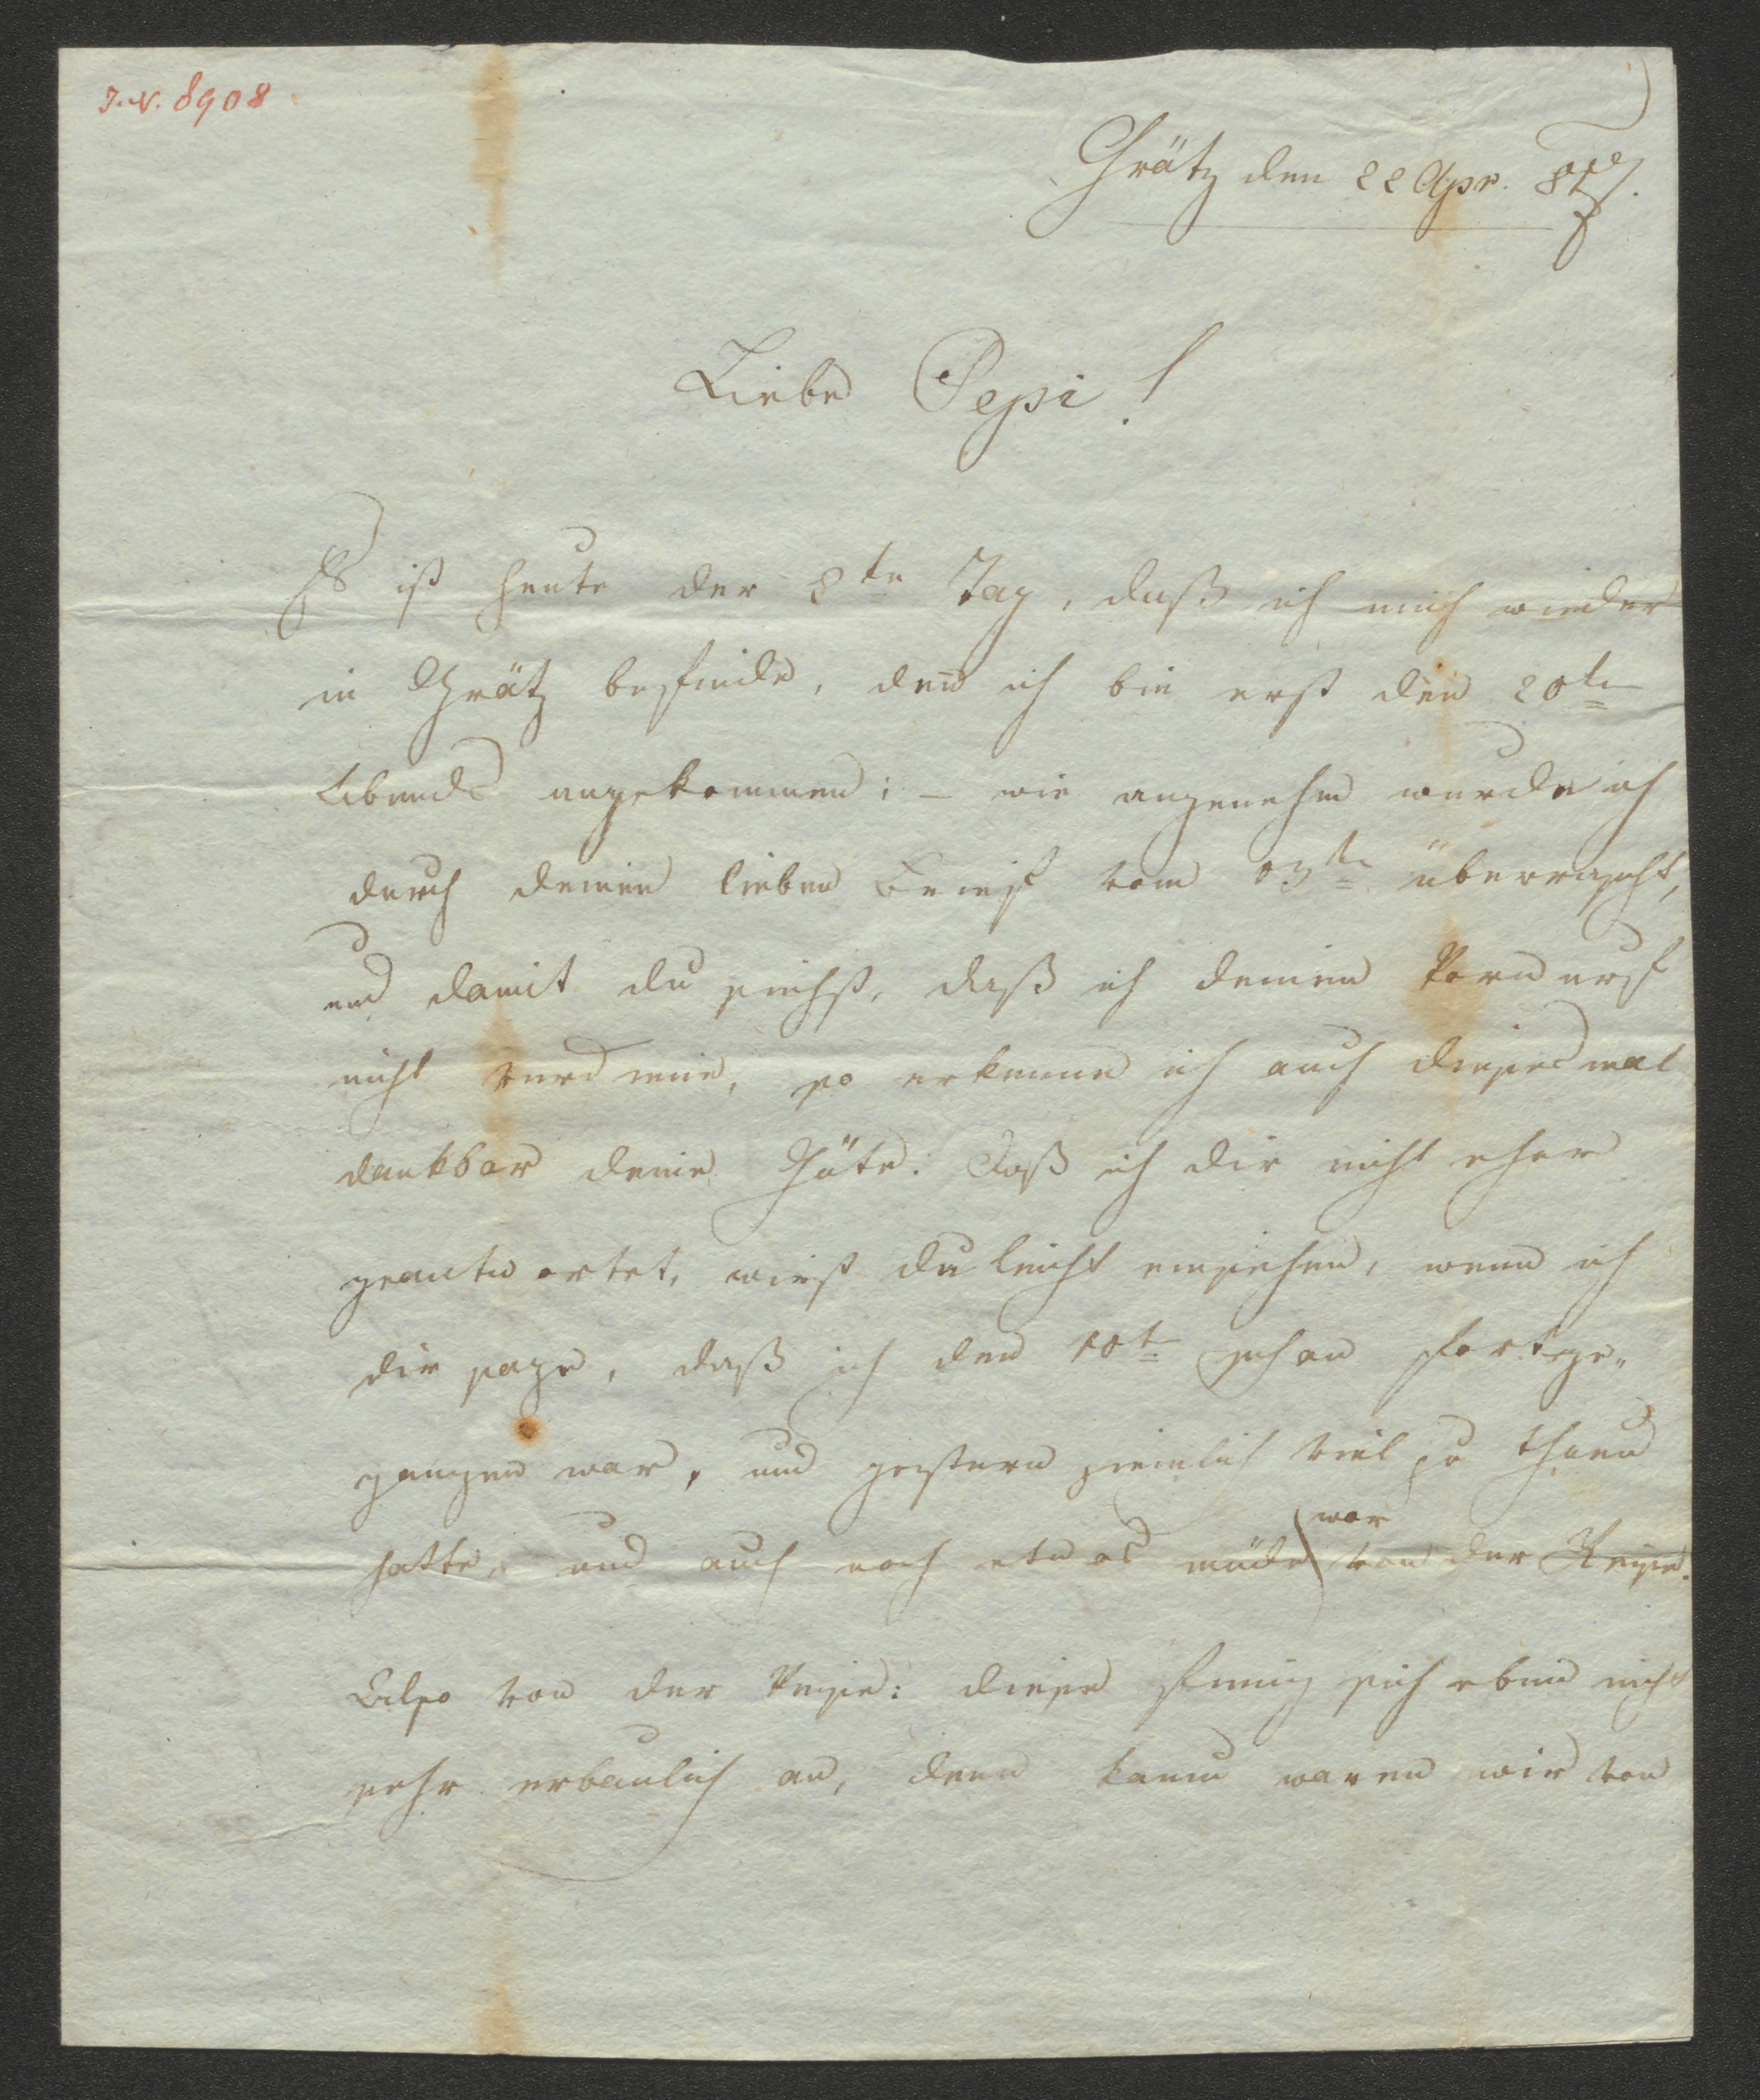 I. N. 8908
Grätz den 22 Apr. 817.
Liebe Pepi!
Es ist heute der 2te Tag, daß ich mich wieder
in Grätz befinde, den̄ ich bin erst den 20ten
Abends angekommen; – wie angenehm wurde ich
durch deinen lieben Brief vom 13ten überrascht,
und damit du siehst, daß ich deinen Vorwurf
nicht verdiene, so erkenne ich auch diesesmal
dankbar deine Güte. Daß ich dir nicht eher
geantwortet, wirst du leicht einsehen, wenn ich
dir sage, daß ich den 10t schon fortge„
gangen war, und gestern ziemlich viel zu thuen
hatte, und auch noch etwas müde war von der Reise.
Also von der Reise: diese fing sich eben nicht
sehr erbaulich an, denn kaum waren wir von